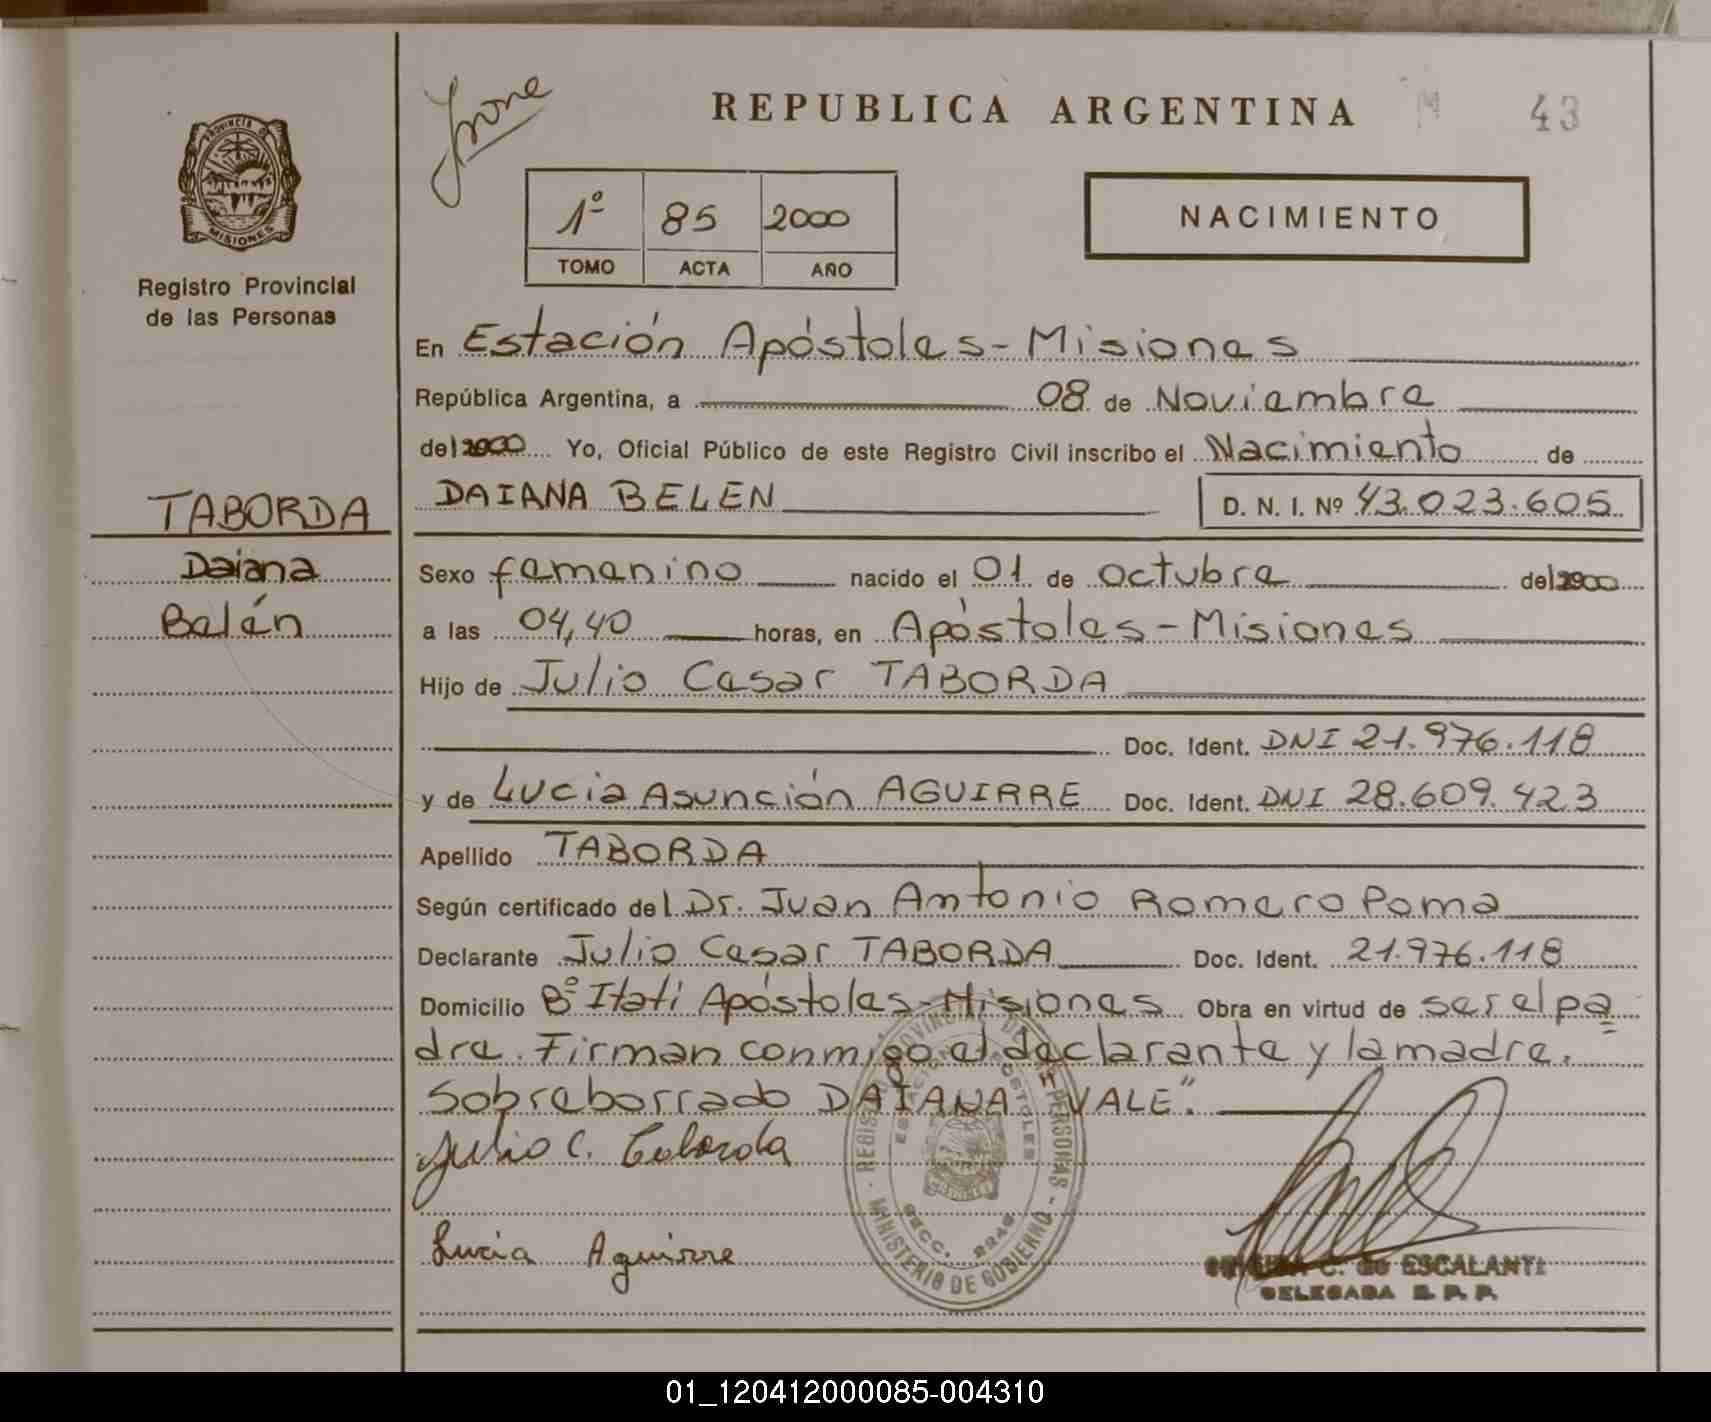 Jrone
REPUBLICA ARGENTINA
M 43
PROVINCIA D
MISIONES
Registro Provincial
de las Personas
1º 85 2000
TOMO ACTA AÑO
NACIMIENTO
En Estación Apóstoles - Misiones
República Argentina, a 08 de Noviembre
del 2000 Yo, Oficial Público de este Registro Civil inscribo el Nacimiento de
DAIANA BELEN D. N. I. Nº 43.023.605
TABORDA
Daiana
Belén
Sexo femenino nacido el 01 de octubre del 2000
a las 04,40 horas, en Apóstoles - Misiones
Hijo de Julio Cesar TABORDA
Doc. Ident. DNI 21.976.118
y de Lucia Asunción AGUIRRE Doc. Ident. DNI 28.609.423
Apellido TABORDA
Según certificado del Dr. Juan Antonio Romero Poma
Declarante Julio Cesar TABORDA Doc. Ident. 21.976.118
Domicilio Bº Itatí Apóstoles - Misiones Obra en virtud de ser el pa
dre. Firman conmigo el declarante y la madre.
Sobreborrado DAIANA "VALE".
Julio C. Taborda
Lucia Aguirre
PROVINCIAL DE LAS PERSONAS - MINISTERIO DE GOBIERNO
SECC. 2246
C. de ESCALANTE
DELEGADA R. P. P.
01_120412000085-004310